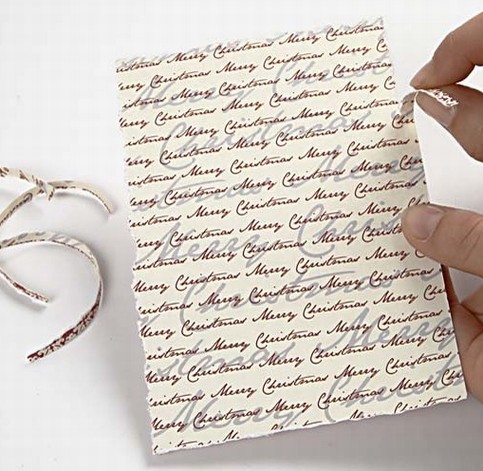 Christmas Merry Christmas Merry Christmas
Merry Christmas Merry Christmas Merry
Christmas Merry Christmas Merry Christmas
Merry Christmas Merry Christmas Merry
Christmas Merry Christmas Merry Christmas
Merry Christmas Merry Christmas Merry
Christmas Merry Christmas Merry Christmas
Merry Christmas Merry Christmas Merry
Christmas Merry Christmas Merry Christmas
Merry Christmas Merry Christmas Merry
Christmas Merry Christmas Merry Christmas
Merry Christmas Merry Christmas Merry
Christmas Merry Christmas Merry Christmas
Merry Christmas Merry Christmas Merry
Christmas Merry Christmas Merry Christmas
Merry Christmas Merry Christmas Merry
Christmas Merry Christmas Merry Christmas
Merry Christmas Merry Christmas Merry